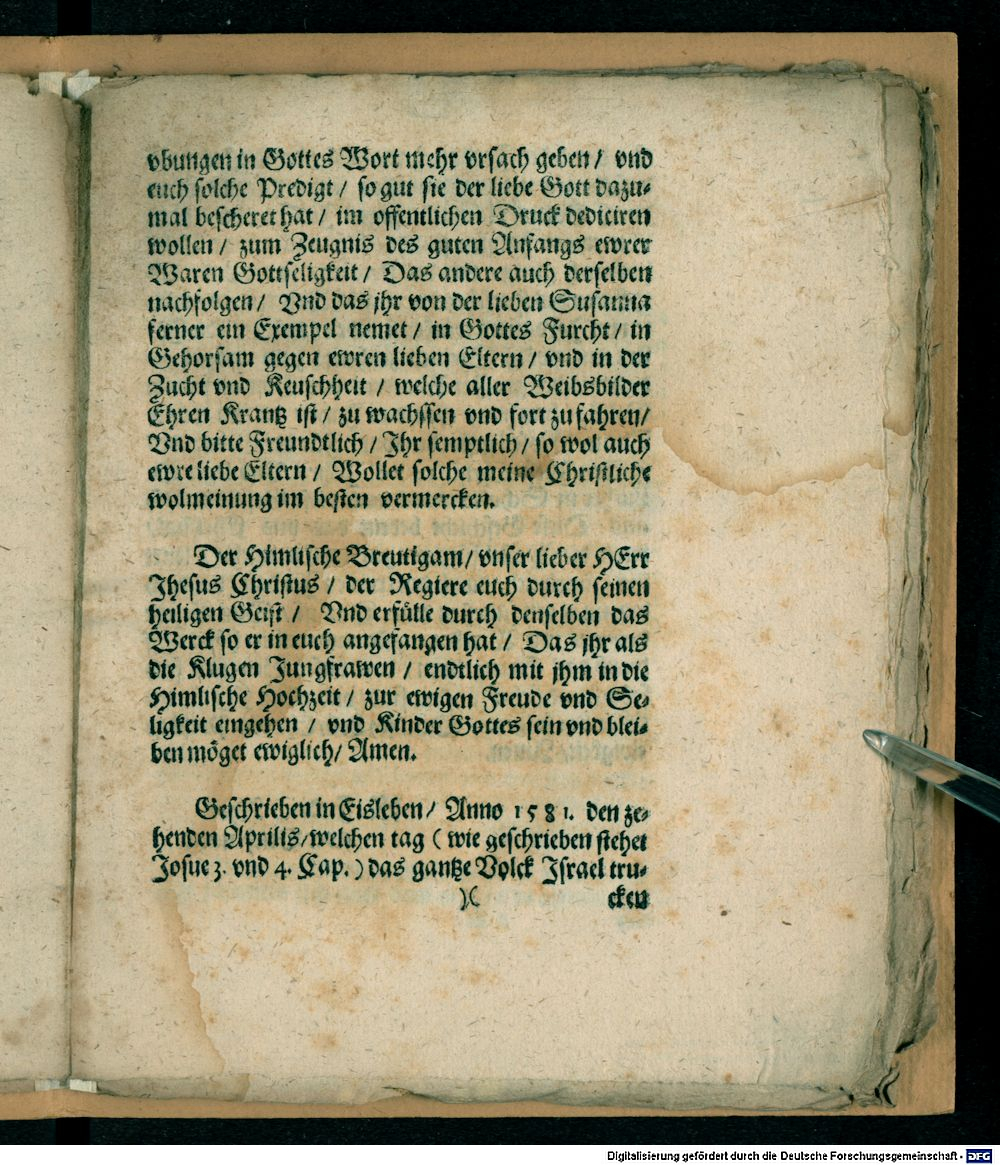 vbungen in Gottes Wort mehr vrsach geben / vnd
euch solche Predigt / so gut sie der liebe Gott dazu-
mal bescheret hat / im offentlichen Druck dediciren
wollen / zum Zeugnis des guten Anfangs ewrer
Waren Gottseligkeit / Das andere auch derselben
nachfolgen / Vnd das jhr von der lieben Susanna
ferner ein Exempel nemet / in Gottes Furcht / in
Gehorsam gegen ewren lieben Eltern / vnd in der
Zucht vnd Keuschheit / welche aller Weibsbilder
Ehren Krantz ist / zu wachssen vnd fort zu fahren /
Vnd bitte Freundtlich / Ihr semptlich / so wol auch
ewre liebe Eltern / Wollet solche meine Christliche
wolmeinung im besten vermercken.
Der Himlische Breutigam / vnser lieber HErr
Jhesus Christus / der Regiere euch durch seinen
heiligen Geist / Vnd erfülle durch denselben das
Werck so er in euch angefangen hat / Das jhr als
die Klugen Jungfrawen / endtlich mit jhm in die
Himlische Hochzeit / zur ewigen Freude vnd Se-
ligkeit eingehen / vnd Kinder Gottes sein vnd blei-
ben möget ewiglich / Amen.
Geschrieben in Eisleben / Anno 1581. den ze-
henden Aprilis / welchen tag ( wie geschrieben stehet
Josue 3. vnd 4. Cap. ) das gantze Volck Israel tru-
)( cken
Digitalisierung gefördert durch die Deutsche Forschungsgemeinschaft - DFG